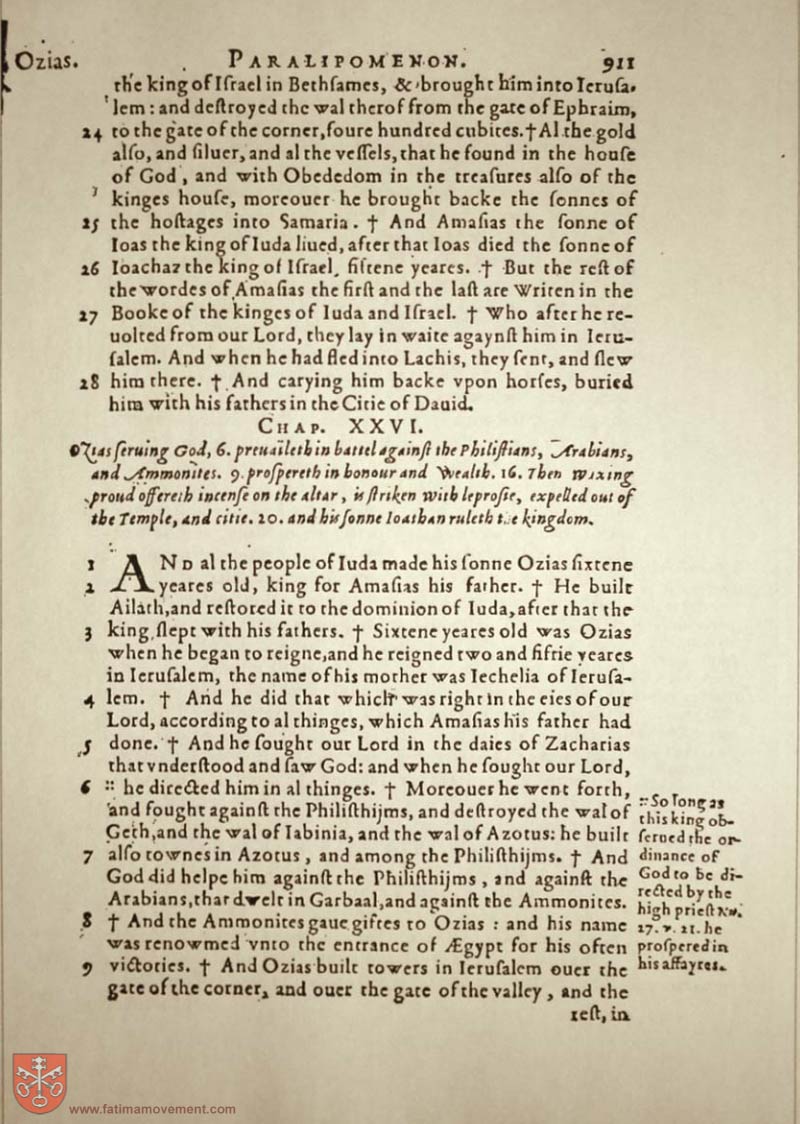 Ozias. PARALIPOMENON. 911
the king of Iſrael in Bethſames, & brought him into Ieruſa-
lem: and deſtroyed the wal therof from the gate of Ephraim,
24 to the gate of the corner, foure hundred cubites. † Al the gold
alſo, and ſiluer, and al the veſſels, that he found in the houſe
of God, and with Obededom in the treaſures alſo of the
kinges houſe, moreouer he brought backe the ſonnes of
25 the hoſtages into Samaria. † And Amaſias the ſonne of
Ioas the king of Iuda liued, after that Ioas died the ſonne of
26 Ioachaz the king of Iſrael, fiftene yeares. † But the reſt of
the wordes of Amaſias the firſt and the laſt are writen in the
27 Booke of the kinges of Iuda and Iſrael. † Who after he re-
uolted from our Lord, they lay in waite agaynſt him in Ieru-
ſalem. And when he had fled into Lachis, they ſent, and ſlew
28 him there. † And carying him backe vpon horſes, buried
him with his fathers in the Citie of Dauid.
CHAP. XXVI.
Ozias ſeruing God, 6. preuaileth in battel againſt the Philiſtians, Arabians,
and Ammonites. 9. proſpereth in honour and wealth. 16. Then waxing
proud offereth incenſe on the altar, is ſtriken with leproſie, expelled out of
the Temple, and citie. 20. and his ſonne Ioathan ruleth the kingdom.
1 AND al the people of Iuda made his ſonne Ozias ſixtene
2 yeares old, king for Amaſias his father. † He built
Ailath, and reſtored it to the dominion of Iuda, after that the
3 king ſlept with his fathers. † Sixtene yeares old was Ozias
when he began to reigne, and he reigned two and fiftie yeares
in Ieruſalem, the name of his mother was Iechelia of Ieruſa-
4 lem. † And he did that which was right in the eies of our
Lord, according to al thinges, which Amaſias his father had
5 done. † And he ſought our Lord in the daies of Zacharias
that vnderſtood and ſaw God: and when he ſought our Lord,
6 :: he directed him in al thinges. † Moreouer he went forth,
and fought againſt the Philiſthijms, and deſtroyed the wal of
Geth, and the wal of Iabinia, and the wal of Azotus: he built
7 alſo townes in Azotus, and among the Philiſthijms. † And
God did helpe him againſt the Philiſthijms, and againſt the
Arabians, that dwelt in Garbaal, and againſt the Ammonites.
8 † And the Ammonites gaue giftes to Ozias: and his name
was renowmed vnto the entrance of Ægypt for his often
9 victories. † And Ozias built towers in Ieruſalem ouer the
gate of the corner, and ouer the gate of the valley, and the
reſt, in
:: So long as
this king ob-
ſerued the or-
dinance of
God to be di-
rected by the
high prieſt Nu.
27. v. 21. he
proſpered in
his affayres.
www.fatimamovement.com